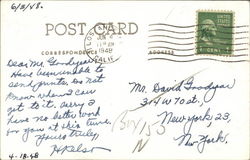 6/5/48.
POST CARD
CORRESPONDENCE
ADDRESS
JUN 6
1948
CALIF
1 CENT 1
Dear Mr. Goodyear
Have been unable to
send prints. Do not
know when I can
get to it. Sorry I
have no better word
for you at this time.
Yours truly,
H Kelso
4-18-48
Mr. David Goodyear
314 W 70 st.
New York 23,
New York.
N